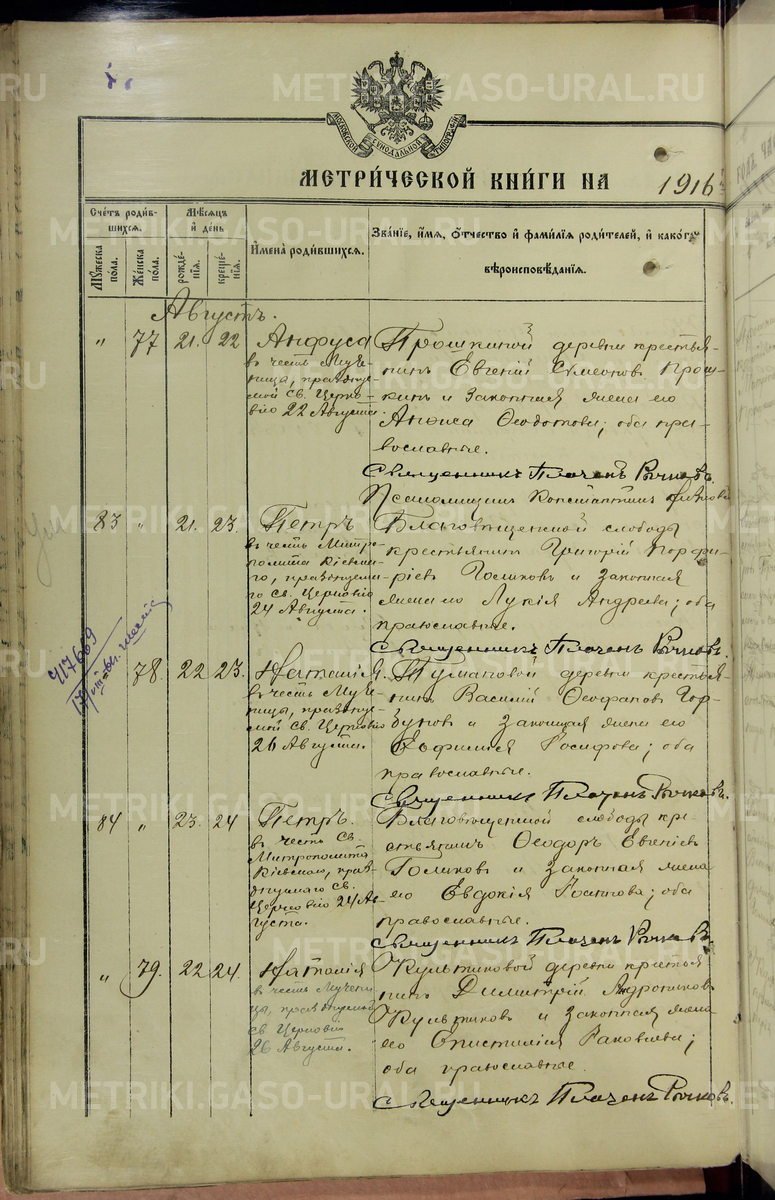 METRIKI.GASO-URAL.RU
МОСКОВСКОЙ СѴНОДАЛЬНОЙ ТИПОГРАФІИ
МЕТРИ́ЧЕСКОЙ КНИ́ГИ НА 1916
Сче́тъ роди́вшихсѧ.
Мꙋ́жеска по́ла.
Же́нска по́ла.
Мѣ́сѧцъ и҆ де́нь
рожде́нїѧ.
креще́нїѧ.
И҆мена̀ роди́вшихсѧ.
Зва́нїе, и҆́мѧ, ѻ҆́тчество и҆ фами́лїѧ роди́телей, и҆ како́гѡ
вѣроисповѣ́данїѧ.
Августъ.
" 77 21. 22
Анфуса
въ честь Муче-
ницы, празднуе-
мой Св. Церко-
вію 22 Августа.
Прошкиной деревни крестья-
нинъ Евгеній Сѵмеоновъ Прош-
кинъ и законная жена его
Анѳиса Ѳеодотова; оба пра-
вославные.
Священникъ Рычковъ.
Псаломщикъ Константинъ
83 " 21. 23.
Петръ
въ честь Митро-
полита Кіевска-
го, празднуема-
го Св. Церковію
24 Августа.
Благовѣщенской слободы
крестьянинъ Григорій Порфи-
ріевъ Голиковъ и законная
жена его Лукія Андреева; оба
православные.
Священникъ Рычковъ.
417669
" 78. 22 23.
Наталія.
въ честь Муче-
ницы, празднуе-
мой Св. Церковію
26 Августа.
Тумановой деревни крестья-
нинъ Василій Ѳеофановъ Гор-
буновъ и законная жена его
Евфимія Іосифова; оба
православные.
Священникъ Рычковъ.
84 " 23. 24
Петръ.
въ честь Св.
Митрополита
Кіевскаго, празд-
нуемаго Св.
Церковію 24 Ав-
густа.
Благовѣщенской слободы кре-
стьянинъ Ѳеодоръ Евгеніевъ
Голиковъ и законная жена
его Евдокія; оба
православные.
Священникъ Рычковъ.
" 79. 22 24.
Наталія
въ честь Мучени-
цы, празднуемой
Св. Церковію
26 Августа.
Культиковой деревни крестья-
нинъ Димитрій Андрониковъ
Культиковъ и законная жена
его Епистимія Іаковлева;
оба православные.
Священникъ Рычковъ.